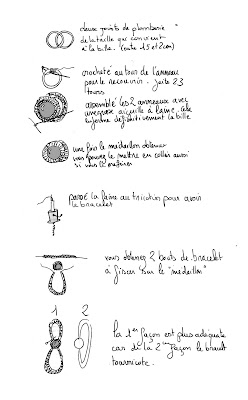 deux joints de plomberie
de la taille qui convient
à la bille. (entre 1,5 et 2cm)
crocheté autour de l'anneau
pour le recouvrir. Juste 2 3
tours
assemblé les 2 anneaux avec
une grosse aiguille à laine, cela
enferme définitivement la bille
une fois le médaillon obtenu
vous pouvez le mettre en collier aussi
si vous le
passé la laine au tricotin pour avoir
le bracelet
vous obtenez 2 bouts de bracelet
à fixer sur le "medaillon"
1 2
La 1ère façon est plus adéquate
car de la 2ème façon le bracelet
tournicote.